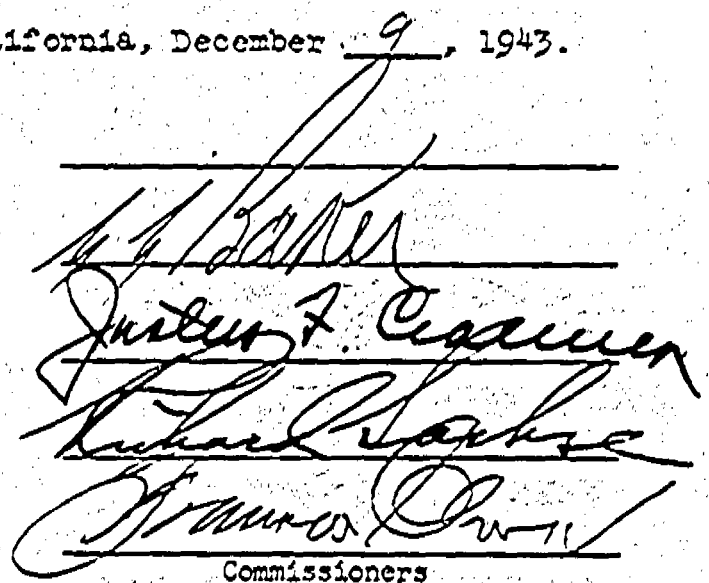 lifornia, December 9, 1943.
Baker
Justus F. Craemer
Richard Sachse
Commissioners